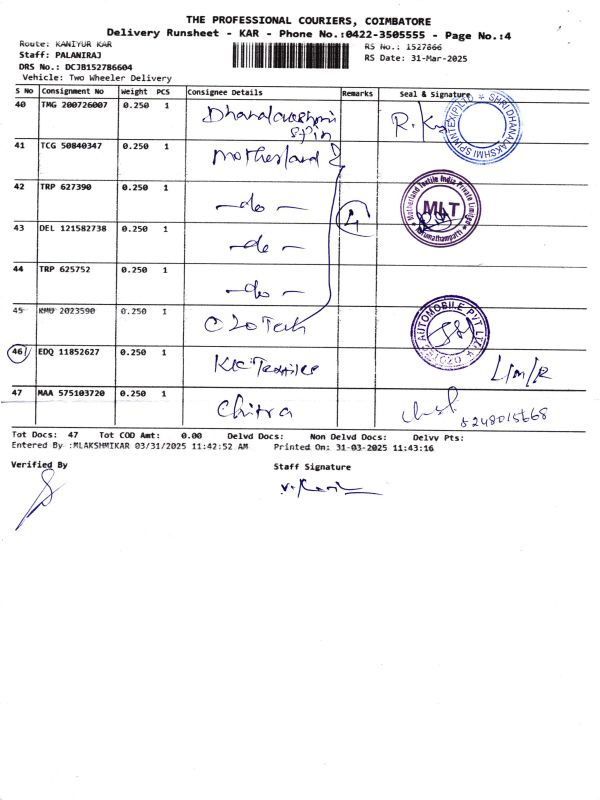 THE PROFESSIONAL COURIERS, COIMBATORE
Delivery Runsheet - KAR - Phone No.:0422-3505555 - Page No.:4
Route: KANIYUR KAR
RS No.: 1527866
Staff: PALANIRAJ
RS Date: 31-Mar-2025
DRS No.: DCJB152786604
Vehicle: Two Wheeler Delivery
S No Consignment No Weight PCS Consignee Details Remarks Seal & Signature
40 TMG 200726007 0.250 1 Dhanalakshmi
Spin
SHRI DHANALAKSHMI SPINNTEX(P)LTD
41 TCG 50840347 0.250 1 Motherland
42 TRP 627390 0.250 1 -do-
4
Motherland Textile India Private Limited
MLT
43 DEL 121582738 0.250 1 -do-
44 TRP 625752 0.250 1 -do-
45 KMU 2023590 0.250 1 O2O Tech
AUTOMOBILE PVT LTD
46 EDQ 11852627 0.250 1 KKC Textiles
L/m/R
47 MAA 575103720 0.250 1 Chitra
8248015668
Tot Docs: 47 Tot COD Amt: 0.00 Delvd Docs: Non Delvd Docs: Delvv Pts:
Entered By :MLAKSHMIKAR 03/31/2025 11:42:52 AM Printed On: 31-03-2025 11:43:16
Verified By
Staff Signature